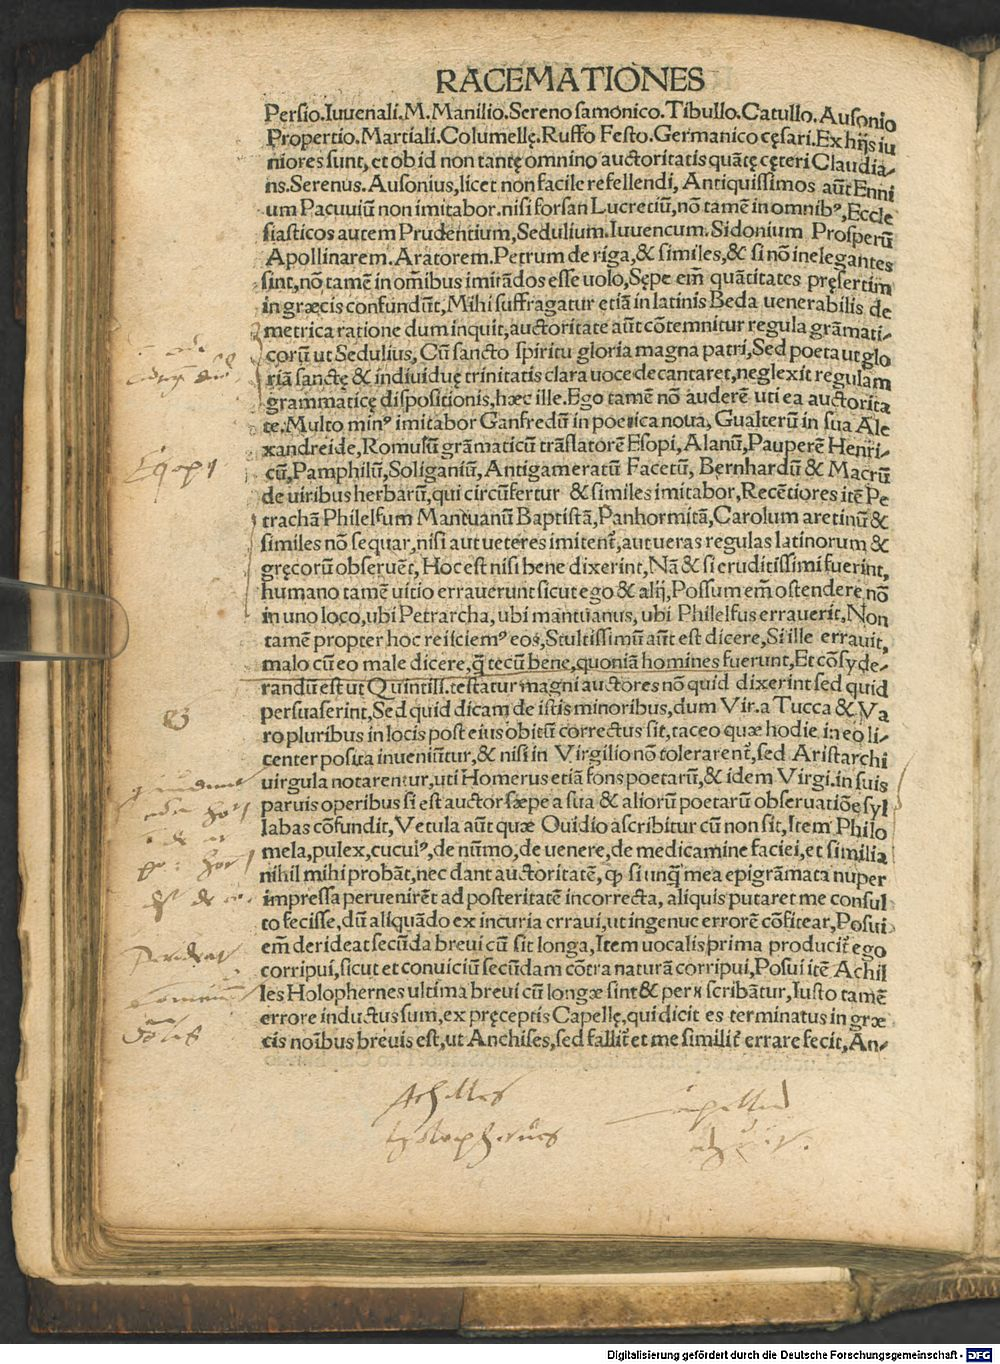 RACEMATIONES
Persio.Iuuenali.M.Manilio.Sereno samonico.Tibullo.Catullo.Ausonio
Propertio.Martiali.Columellę.Ruffo Festo.Germanico cęsari.Ex hijs iu
niores sunt, et ob id non tantę omnino auctoritatis quãtę cęteri Claudia-
ns.Serenus.Ausonius,licet non facile refellendi, Antiquissimos aũt Enni
um Pacuuiũ non imitabor.nisi forsan Lucretiũ,nõ tamẽ in omnibꝰ,Eccle
siasticos autem Prudentium,Sedulium.Iuuencum.Sidonium Prosperũ
Apollinarem.Aratorem.Petrum de riga,& similes,& si nõ inelegantes
sint,nõ tamẽ in om̃ibus imitãdos esse uolo,Sępe em̃ quãtitates pręsertim
in græcis confundũt,Mihi suffragatur etiã in latinis Beda uenerabilis de
metrica ratione dum inquit,auctoritate aũt cõtemnitur regula grãmati-
corũ ut Sedulius, Cũ sancto spiritu gloria magna patri,Sed poeta ut glo
riã sanctę & indiuiduę trinitatis clara uoce decantaret,neglexit regulam
grammaticę dispositionis,hæc ille.Ego tamẽ nõ auderẽ uti ea auctorita
te.Multo minꝰ imitabor Ganfredũ in poetica noua, Gualterũ in sua Ale
xandreide,Romulũ grãmaticũ trãslatorẽ Esopi,Alanũ,Pauperẽ Henri-
cũ,Pamphilũ,Soliganiũ,Antigameratũ Facetũ, Bernhardũ & Macrũ
de uiribus herbarũ,qui circũfertur & similes imitabor,Recẽtiores itẽ Pe
trachã Philelfum Mantuanũ Baptistã,Panhormitã,Carolum aretinũ &
similes nõ sequar,nisi aut ueteres imitent᷑,aut ueras regulas latinorum &
gręcorũ obseruẽt, Hoc est nisi bene dixerint,Nã & si eruditissimi fuerint,
humano tamẽ uitio errauerunt sicut ego & alij, Possum em̃ ostendere nõ
in uno loco,ubi Petrarcha, ubi mantuanus, ubi Philelfus errauerit,Non
tamẽ propter hoc reijciemꝰ eos,Stultissimũ aũt est dicere,Si ille errauit,
malo cũ eo male dicere,q̃ tecũ bene,quoniã homines fuerunt,Et cõsyde-
randũ est ut Quintili.testatur magni auctores nõ quid dixerint sed quid
persuaserint,Sed quid dicam de istis minoribus,dum Vir.a Tucca & Va
ro pluribus in locis post eius obitũ correctus sit,taceo quæ hodie in eo li-
center posita inueniũtur,& nisi in Virgilio nõ tolerarent᷑,sed Aristarchi
uirgula notarentur,uti Homerus etiã fons poetarũ,& idem Virgi.in suis
paruis operibus si est auctor sæpe a sua & aliorũ poetarũ obseruatiõe syl
labas cõfundit,Vetula aũt quæ Ouidio ascribitur cũ non sit,Item Philo
mela,pulex,cuculꝰ,de nũmo,de uenere,de medicamine faciei,et similia
nihil mihi probãt,nec dant auctoritatẽ, ꝙ si unq̃ mea epigrãmata nuper
impressa peruenirẽt ad posteritatẽ incorrecta, aliquis putaret me consul
to fecisse,dũ aliquãdo ex incuria erraui,ut ingenue errorẽ cõfitear,Posui
em̃ derideat secũda breui cũ sit longa,Item uocalis prima producit᷑ ego
corripui,sicut et conuiciũ secũdam cõtra naturã corripui,Posui itẽ Achil
les Holophernes ultima breui cũ longæ sint & per η scribãtur,Iusto tamẽ
errore inductus sum,ex pręceptis Capellę,qui dicit es terminatus in græ
cis noĩbus breuis est,ut Anchises,sed fallit᷑ et me similit᷑ errare fecit,An-
Achilles
Holophernes
Digitalisierung gefördert durch die Deutsche Forschungsgemeinschaft - DFG